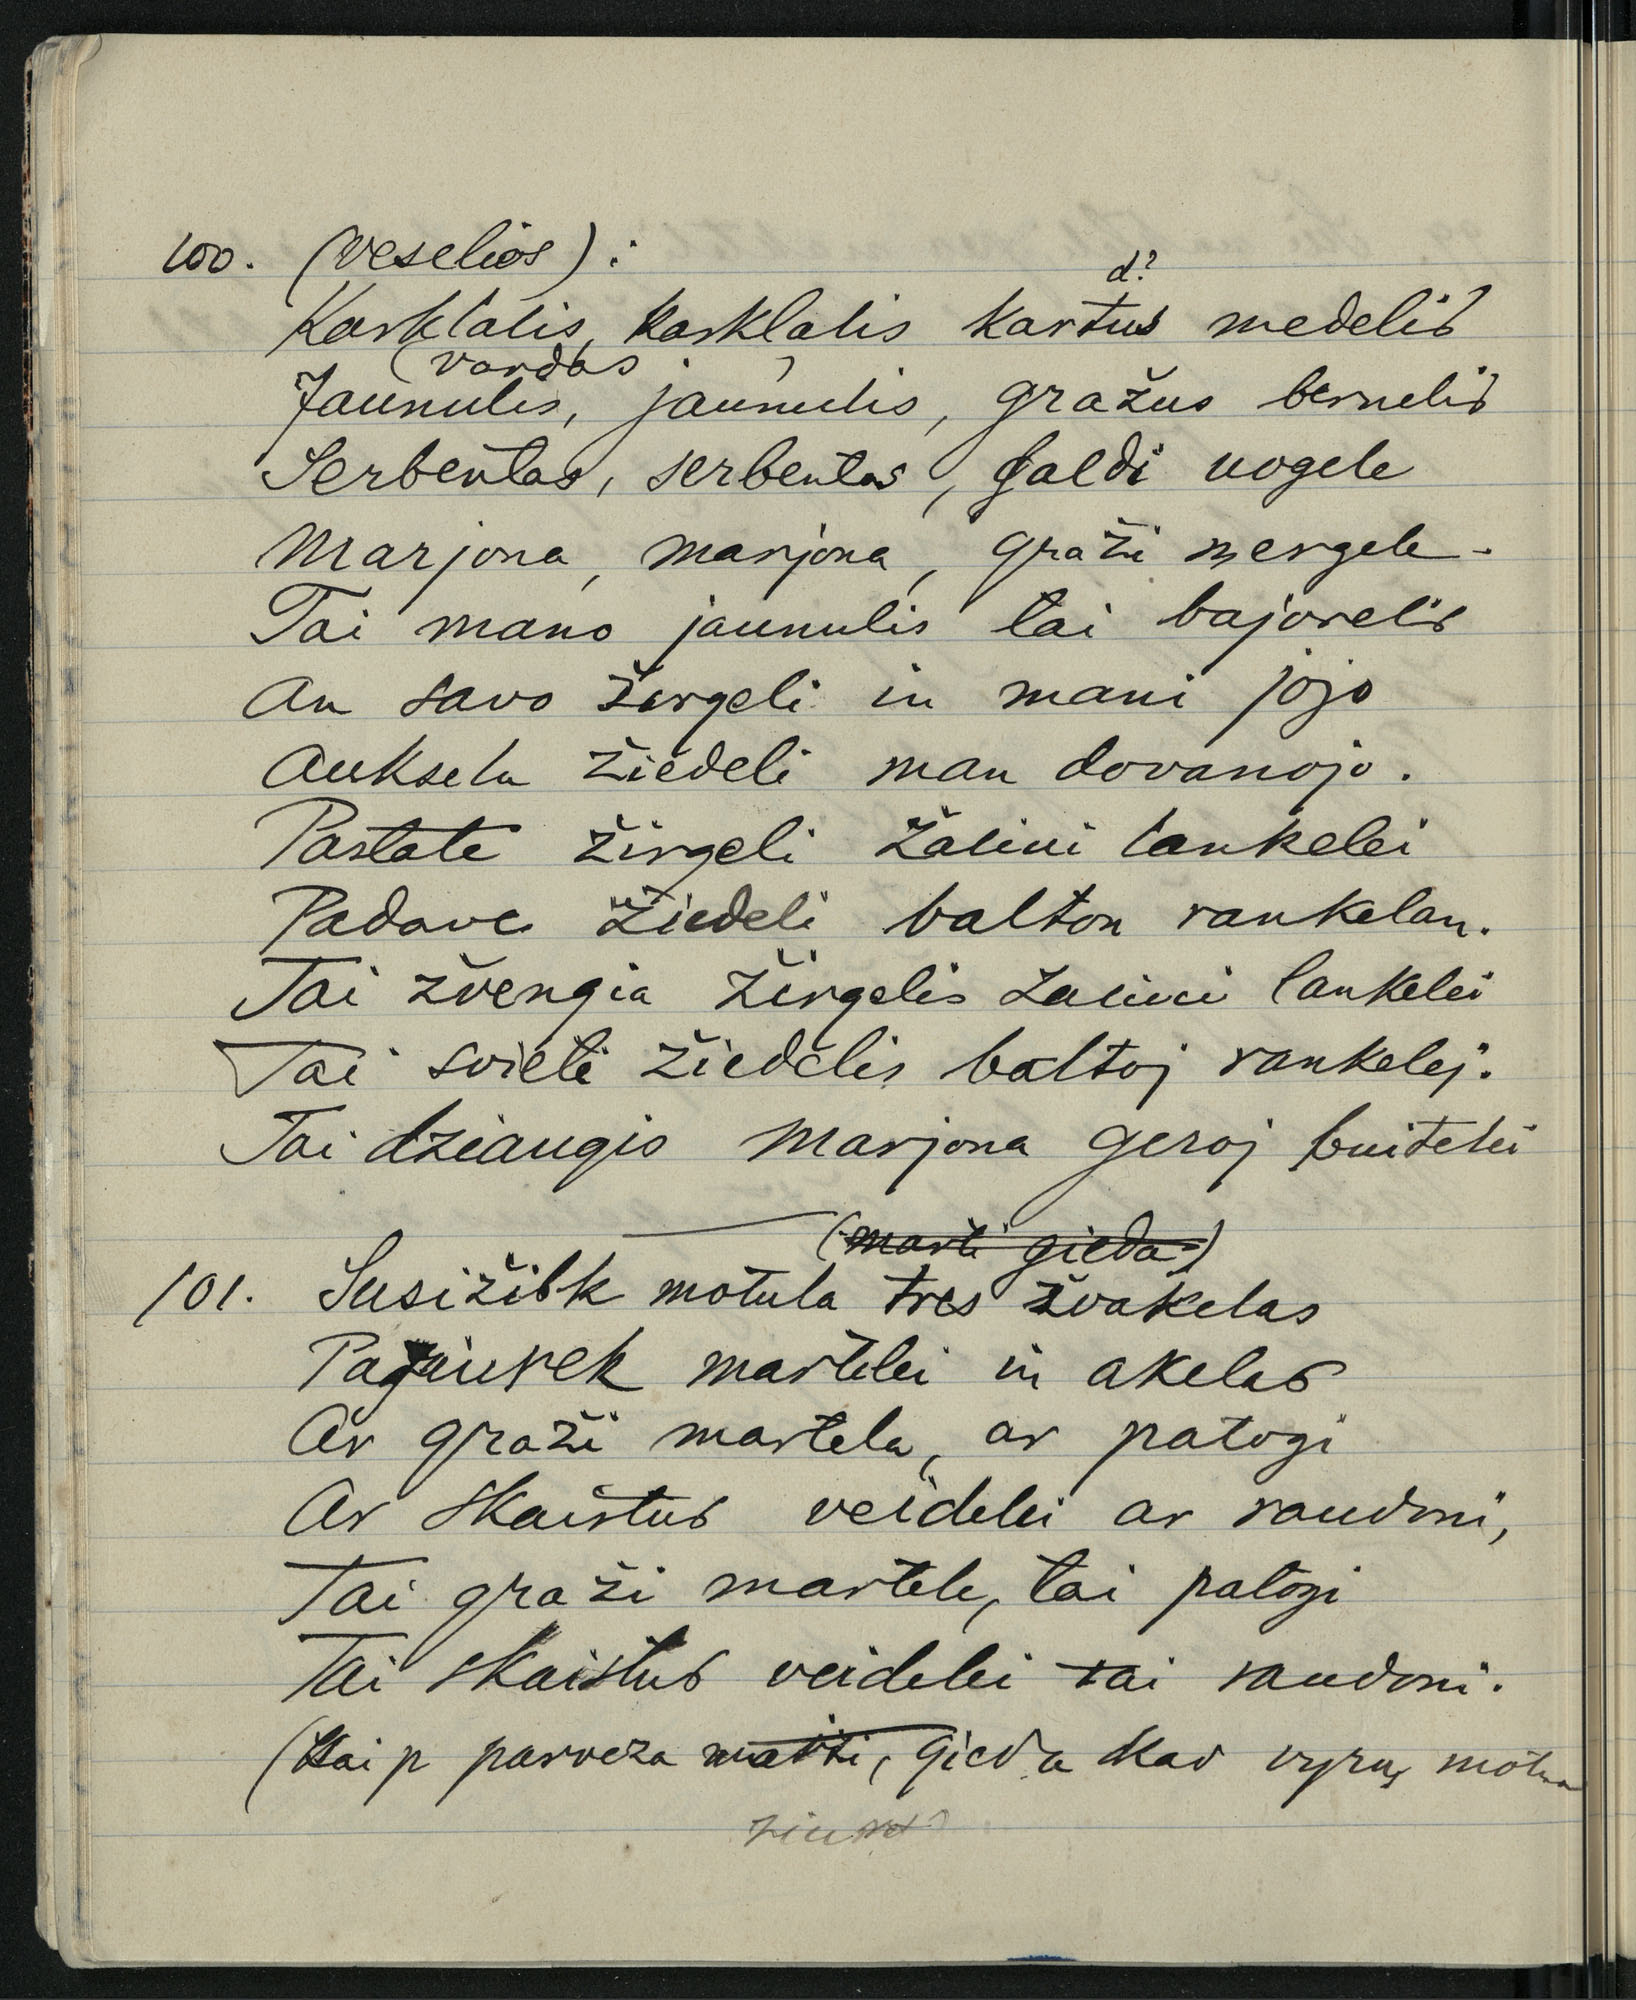 100. (veselios):
d?
Karklalis, karklalis kartus medelis
(vardas)
Jaunulis, jaunulis, gražus bernelis
Serbentas, serbentas, saldi uogele
Marjona, marjona, graži mergele.
Tai mano jaunulis tai bajorelis
An savo žirgeli in mani jojo
Auksela žiedeli man dovanojo.
Pastate žirgeli žalini lankelei
Padave žiedeli balton rankelan.
Tai žvengia žirgelis žalini lankelei
Tai svieti žiedelis baltoj rankelej.
Tai džiaugis Marjona geroj buitelei
(marti gieda)
101. Susižibk motula tres žvakelas
Pažiurek martelei in akelas
Ar graži martela, ar patogi
Ar skaistus veidelei ar raudoni,
Tai graži martele, tai patogi
Tai skaistus veidelei tai raudoni.
(Kaip parveza marti, gieda kad vyrų motina
žiurėt